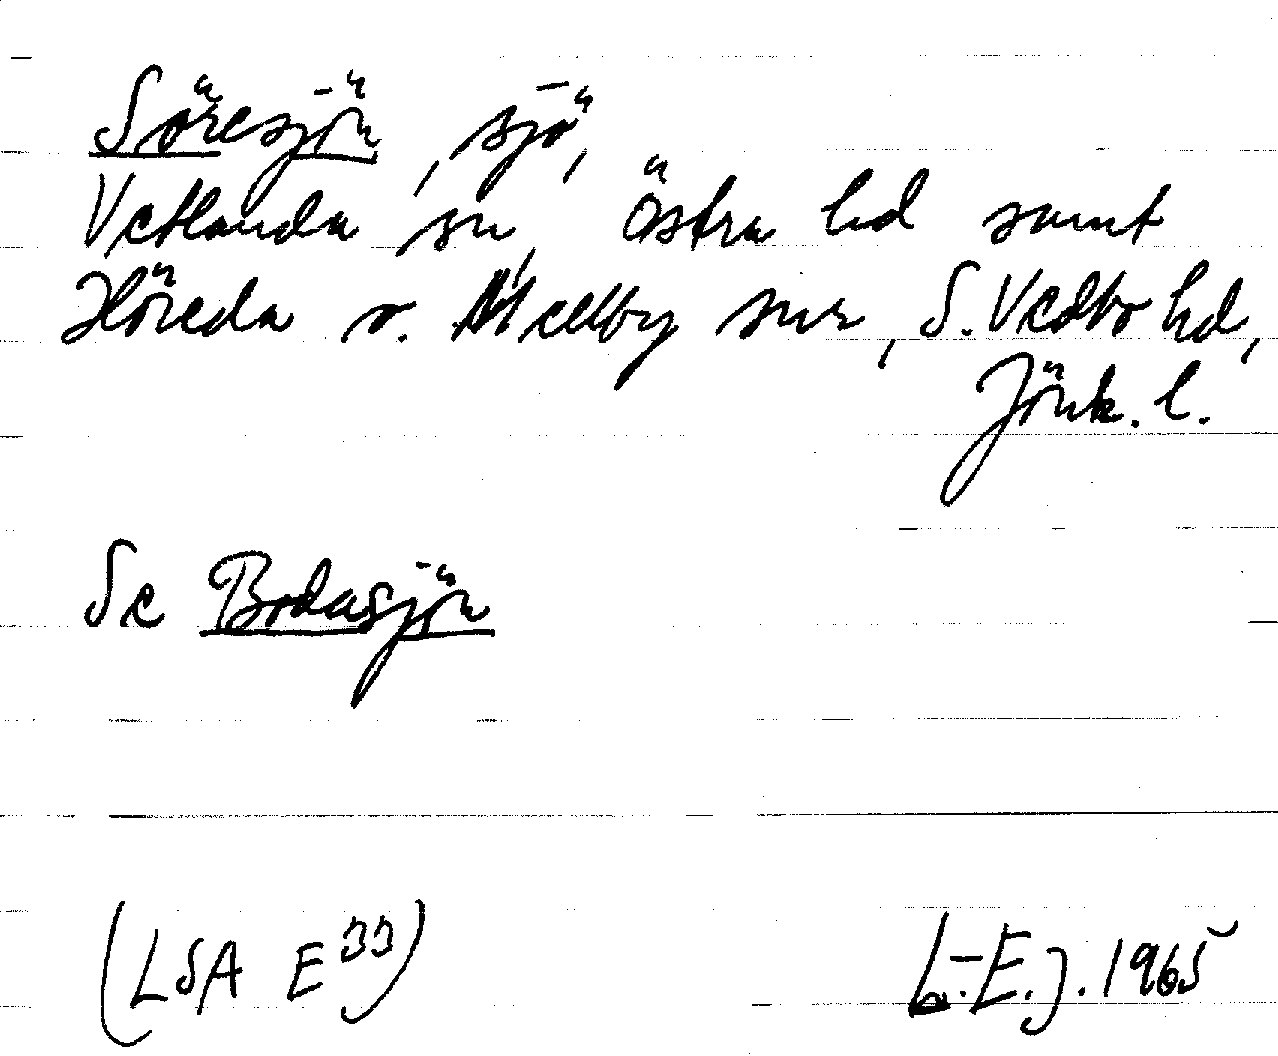 Söresjön, sjö,
Vetlanda sn, Östra hd samt
Höreda o. Mellby snr, S. Vedbo hd,
Jönk. l.
Se Bodasjön
(LSA E33) L.-E. J. 1965